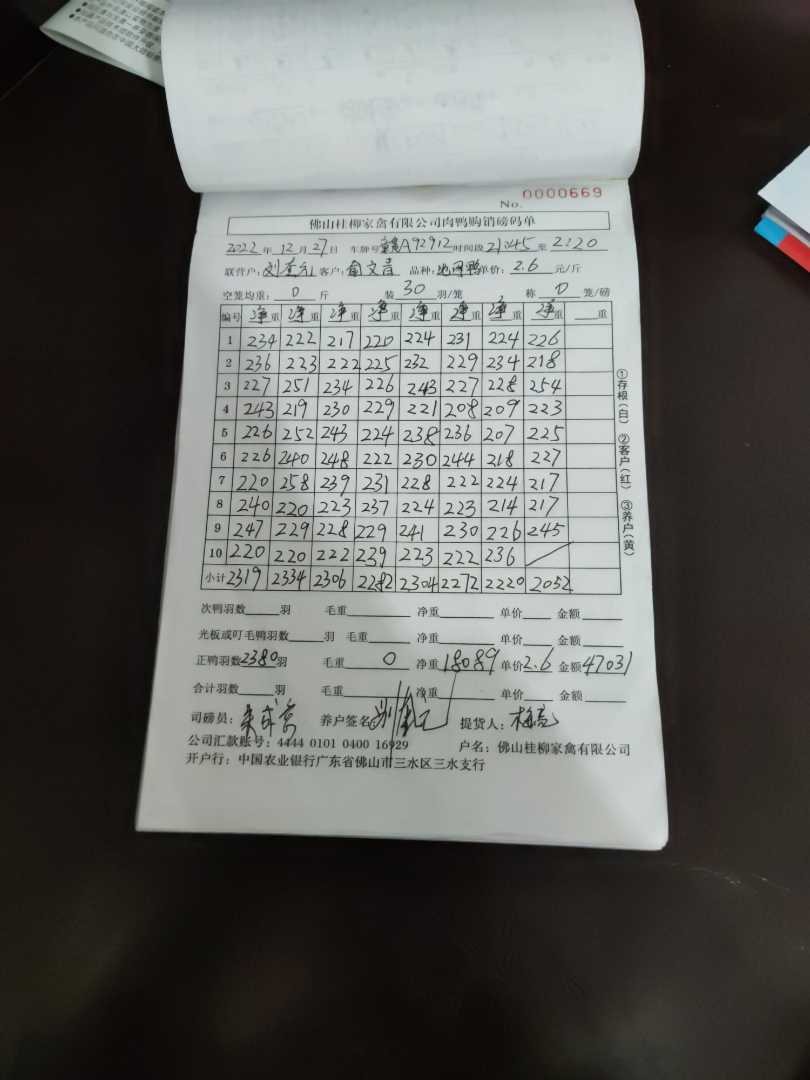 No. 0000669
佛山桂柳家禽有限公司肉鸭购销磅码单
2022年12月27日 车牌号 A92912 时间段 21:45 至 2220
联营户: 客户: 品种: 单价: 2.6 元/斤
空笼均重: 0 斤 装 30 羽/笼 称 0 笼/磅
编号 净重 净重 净重 净重 净重 净重 净重 净重 重
1 234 222 217 220 224 231 224 226
2 236 223 222 225 232 229 234 218
3 227 251 234 226 243 227 228 254
4 243 219 230 229 221 208 209 223
5 226 252 243 224 238 236 207 225
6 226 240 248 222 230 244 218 227
7 220 258 239 231 228 222 224 217
8 240 220 223 237 224 223 214 217
9 247 229 228 229 241 230 226 245
10 220 220 222 239 223 222 236 /
小计 2319 2334 2306 2282 2304 2272 2220 2052
①存根(白) ②客户(红) ③养户(黄)
次鸭羽数 羽 毛重 净重 单价 金额
光板或叮毛鸭羽数 羽 毛重 净重 单价 金额
正鸭羽数 2380 羽 毛重 0 净重 18089 单价 2.6 金额 47031
合计羽数 羽 毛重 净重 单价 金额
司磅员: 养户签名 提货人:
公司汇款账号: 4444 0101 0400 16929 户名: 佛山桂柳家禽有限公司
开户行: 中国农业银行广东省佛山市三水区三水支行